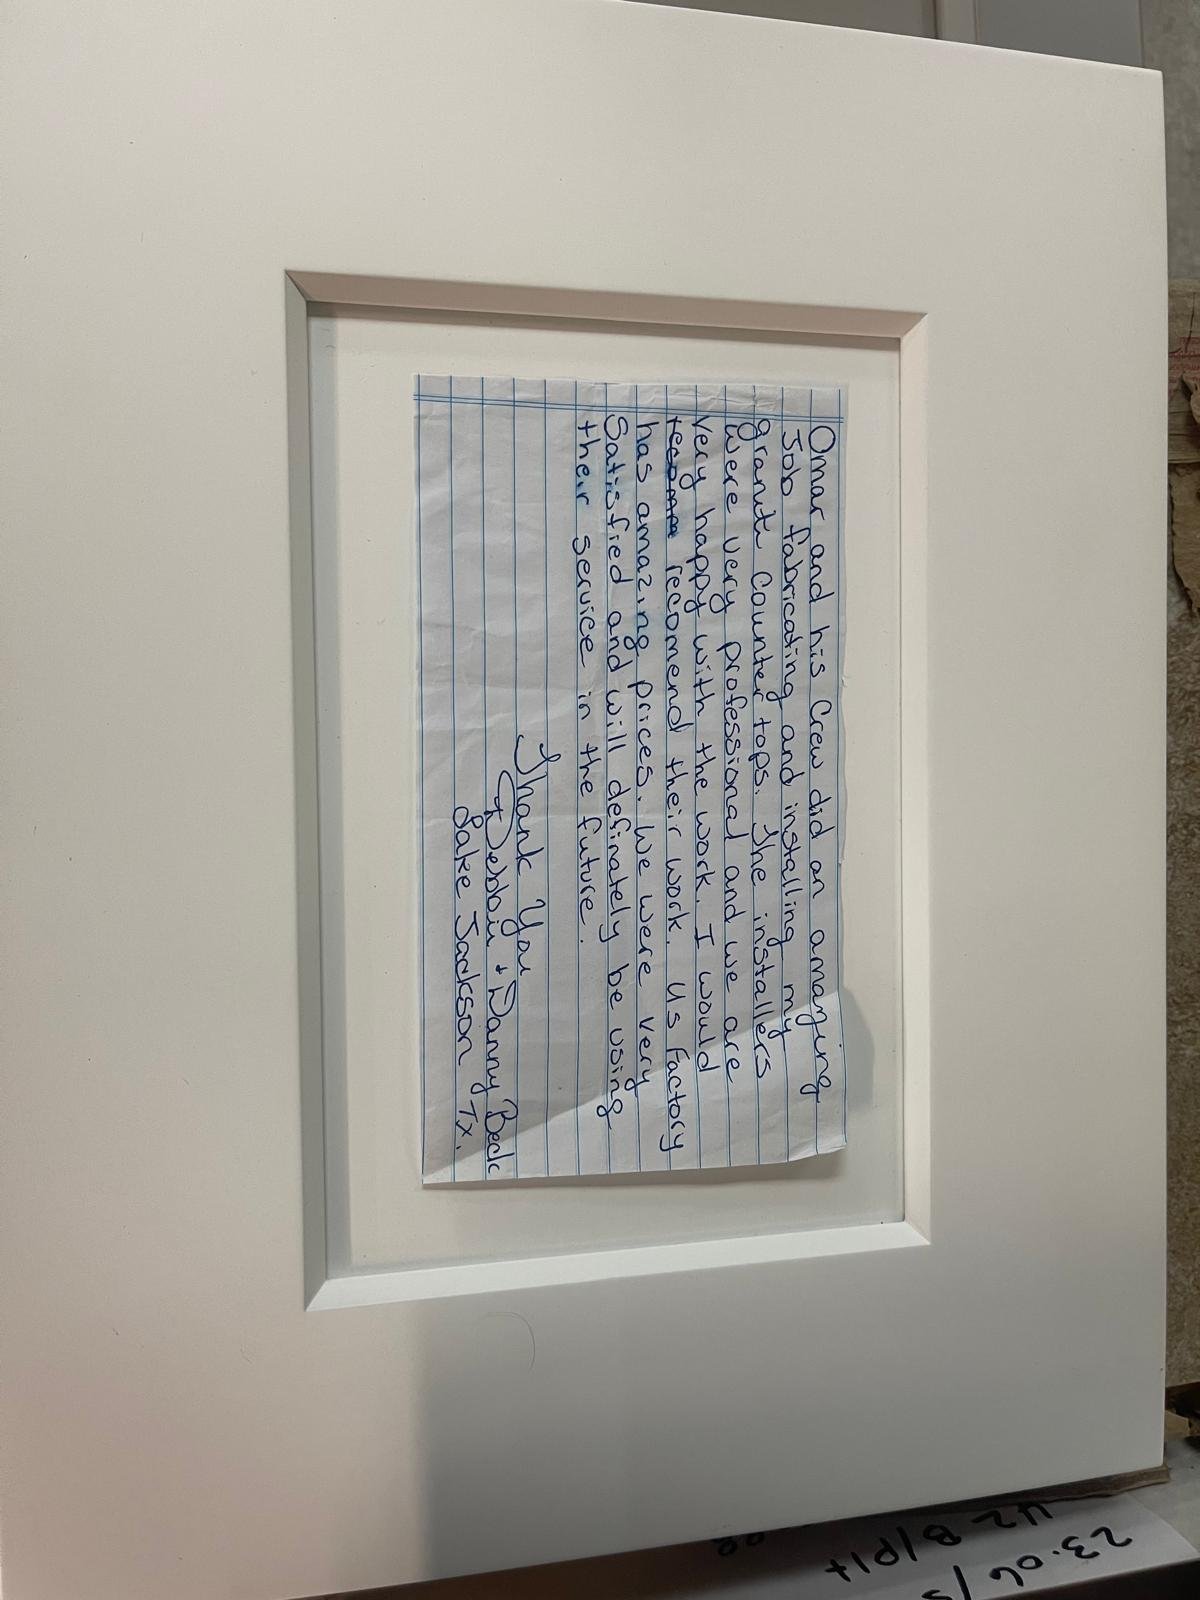 Omar and his Crew did an amazing
Job fabricating and installing my
granite Counter tops. The installers
were very professional and we are
very happy with the work. I would
recomend their work. US Factory
has amazing prices. We were very
Satisfied and will definately be using
their service in the future.
Thank You
Debbie + Danny Beck
Lake Jackson Tx.
23.06/5
42 B/P1+